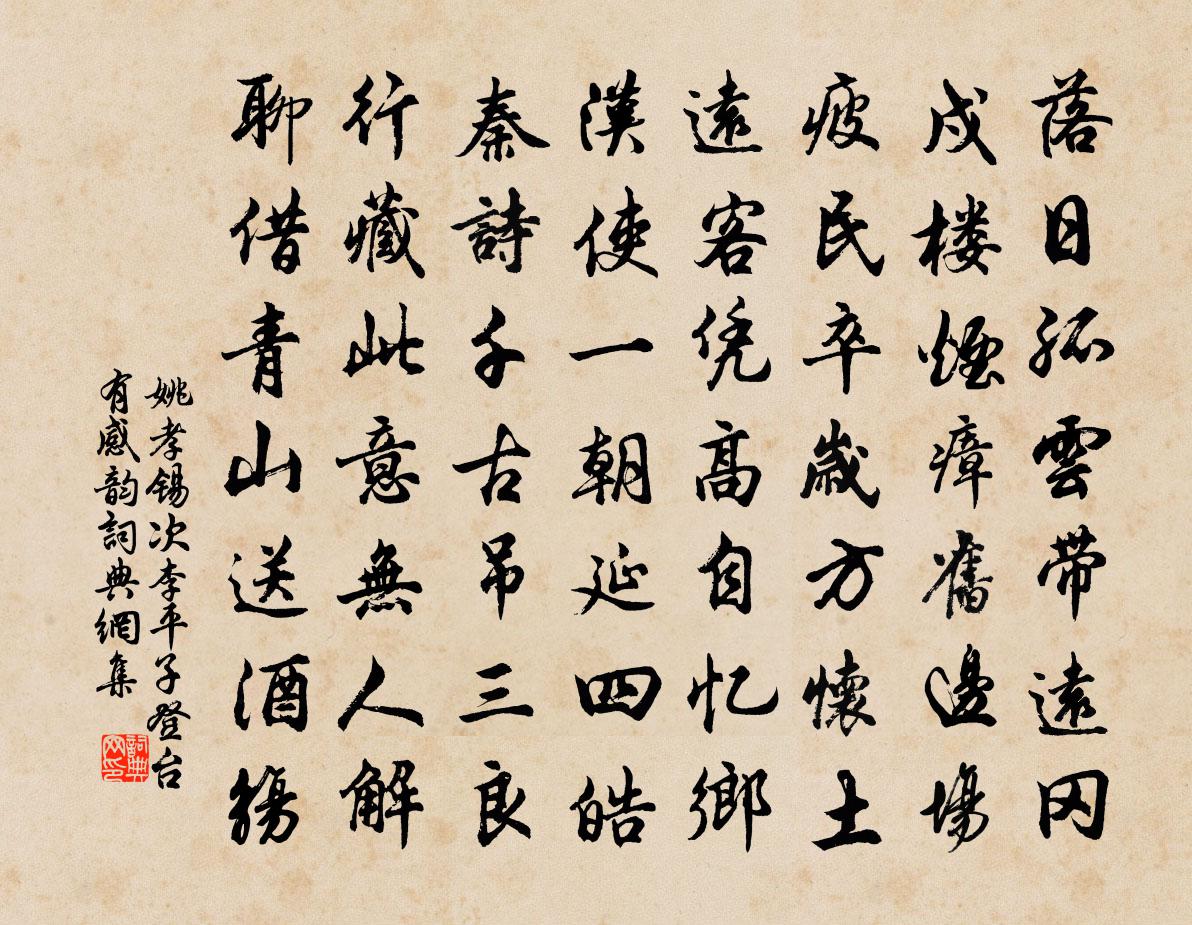 落日孤雲帶遠冈
戍楼煙瘴舊邊場
疲民卒歲方懷土
遠客凭高自忆鄉
漢使一朝延四皓
秦詩千古吊三良
行藏此意無人解
聊借青山送酒觴
姚孝锡次李平子登台
有感韵詞典網集
詞典
网印